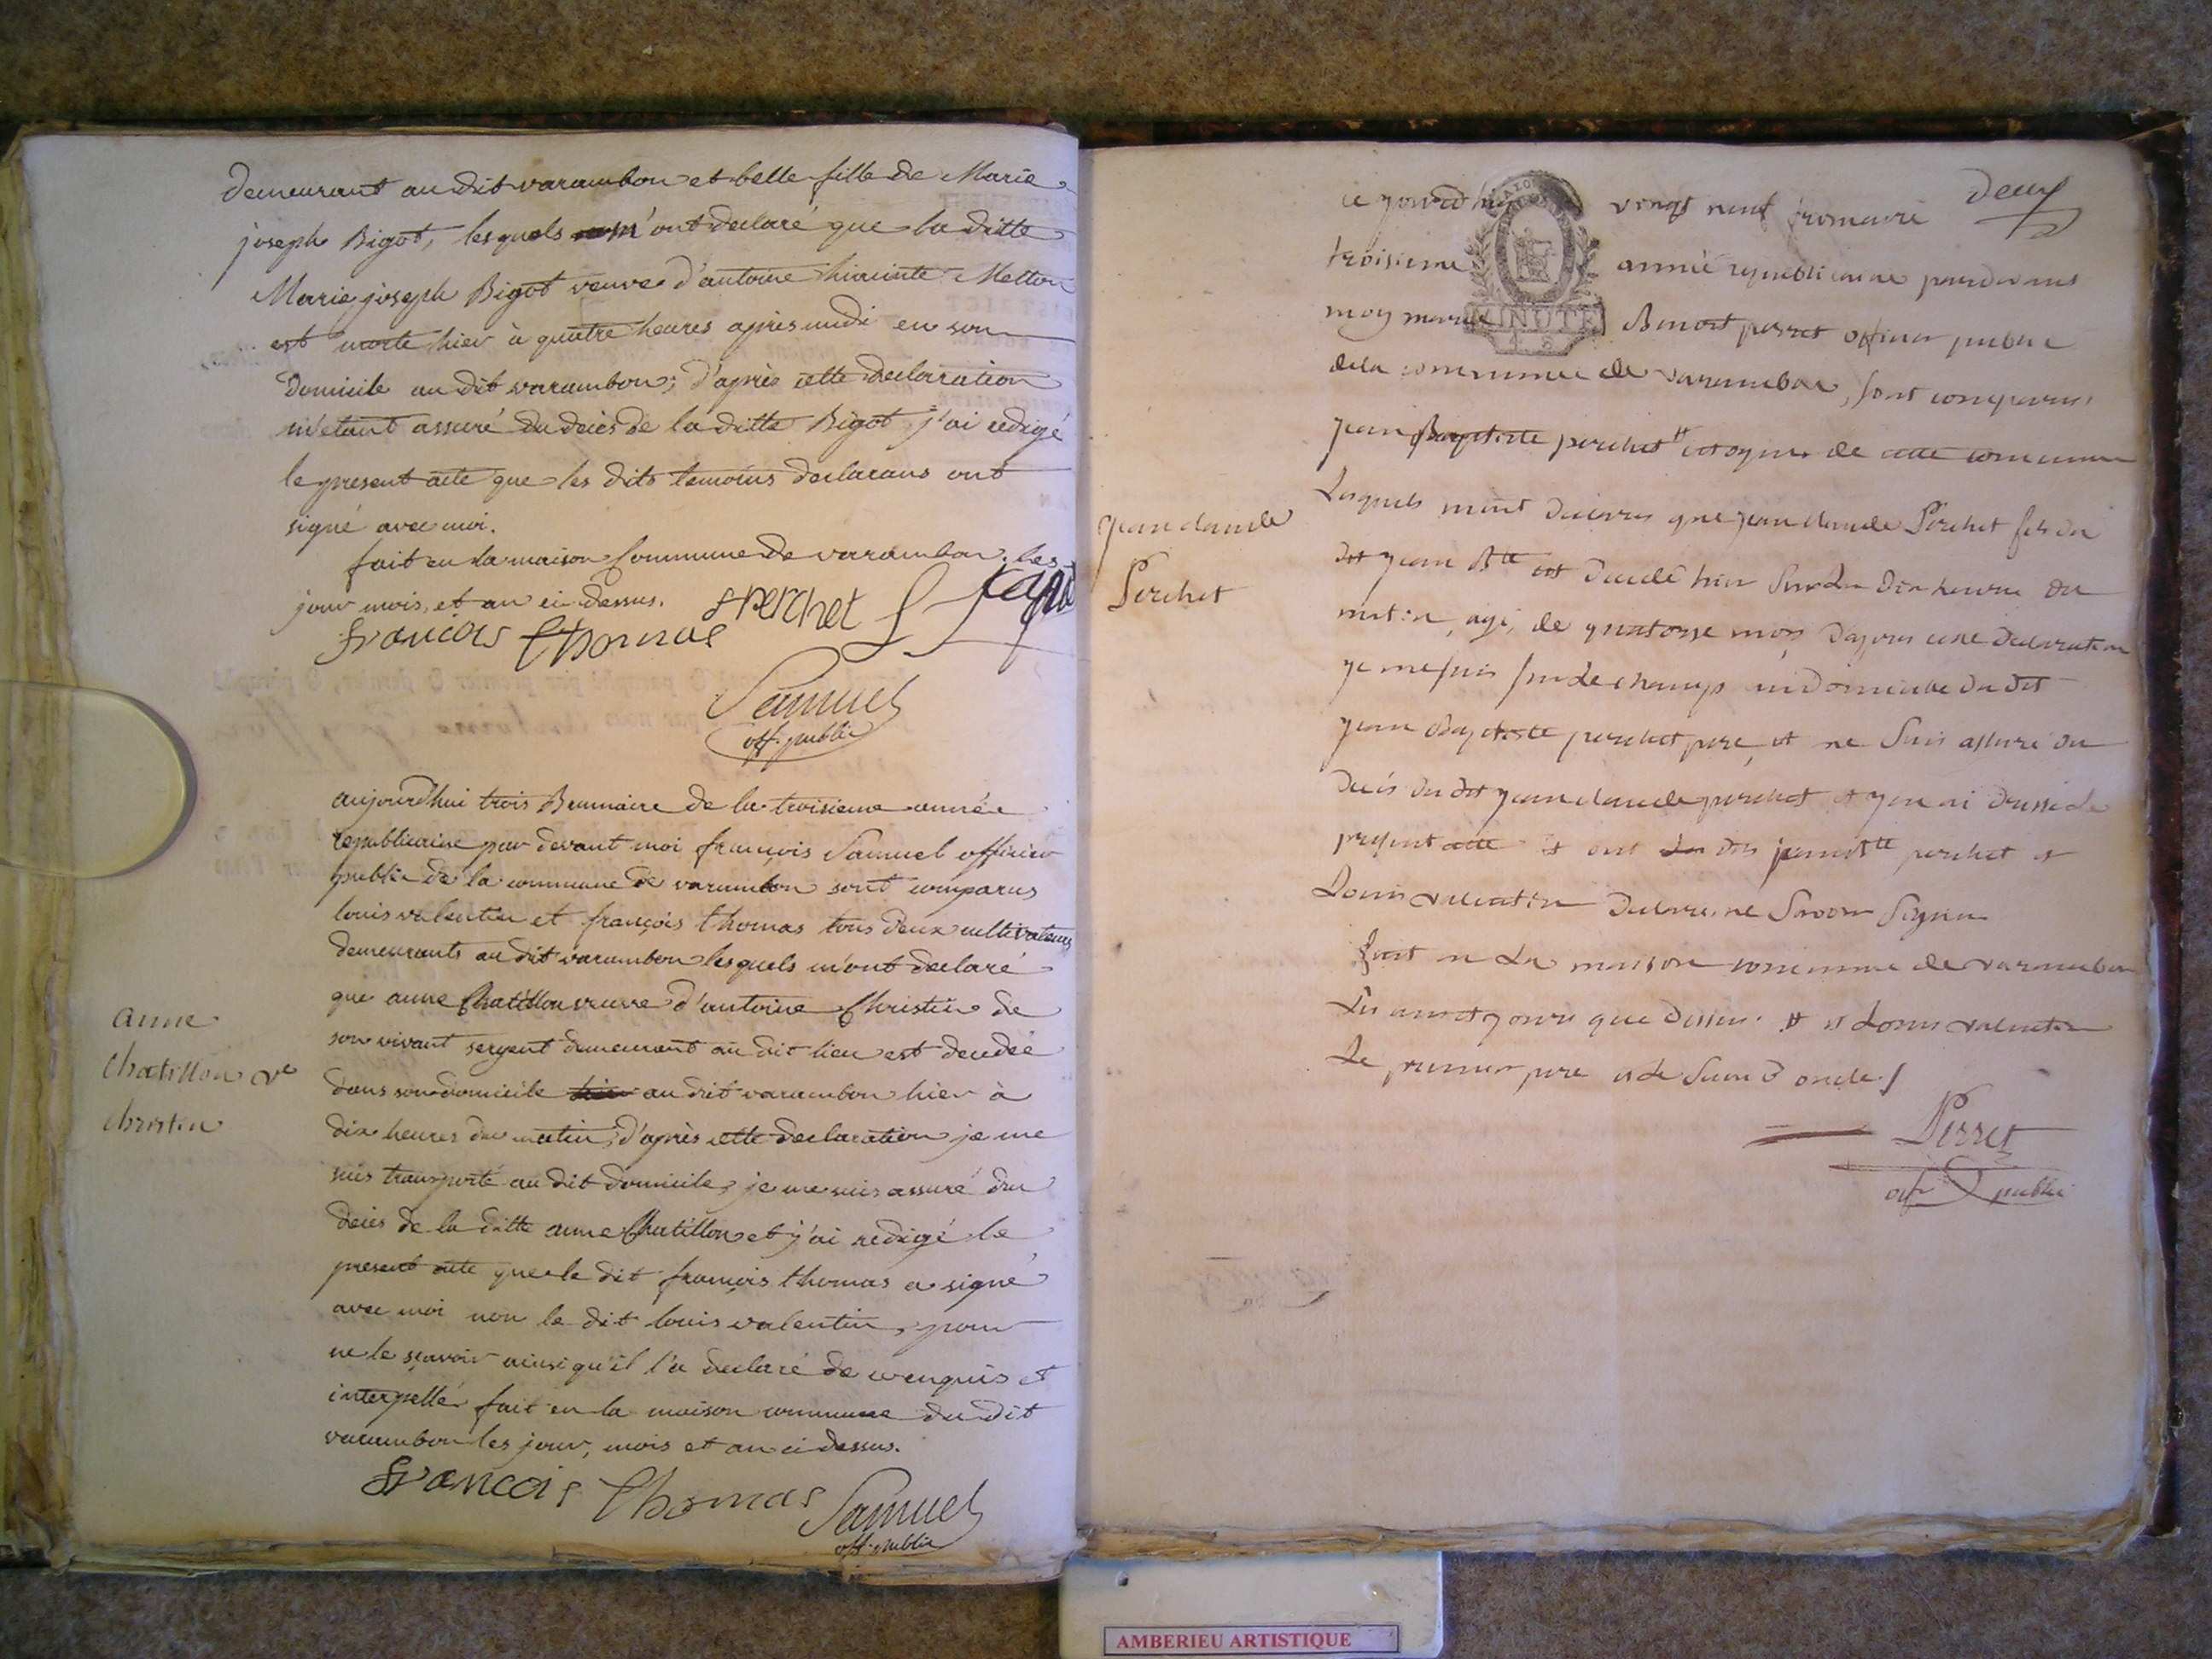 demeurant au dit varambon et belle fille de Marie
joseph Bigot, lesquels m'ont declaré que la ditte
Marie joseph Bigot veuve d'antoine hiacinte Metton
est morte hier à quatre heures après midi en son
domicile au dit varambon; d'après cette declaration
m'etant assuré du decès de la ditte Bigot, j'ai redigé
le present acte que les dits temoins declarans ont
signé avec moi.
fait en la maison Commune de varambon les
jour mois et an ci dessus.
f perchet
françois thomas
Samuel
off. public
anne
chatillon ve
christin
aujourd'hui trois Brumaire de la troisieme année
republicaine par devant moi françois Samuel officier
public de la commune de varambon sont comparus
louis valentin et françois thomas tous deux cultivateurs
demeurants au dit varambon lesquels m'ont declaré
que anne Chatillon veuve d'antoine Christin de
son vivant sergent demeurant au dit lieu est decedée
dans son domicile hier au dit varambon hier à
dix heures du matin; d'après cette declaration je me
suis transporté au dit domicile, je me suis assuré du
decès de la ditte anne Chatillon et j'ai redigé le
present acte que le dit françois thomas a signé
avec moi non le dit louis valentin, pour
ne le sçavoir ainsi qu'il l'a declaré de ce enquis et
interpellé fait en la maison commune du dit
varambon les jour, mois et an ci dessus.
françois thomas
Samuel
off. public
deux
ce jourd'hui vingt neuf frimaire
troisieme année republicaine pardevans
moy Benoit perret officier public
MINUTE
de la commune de varambon, sont comparus
jean Baptiste perchet # citoyens de cette commune
Lesquels mont declarer que jean claude Perchet fils du
dit jean Bte est decedé hier sur les dix heures du
matin, agé, de quatorze mois d'apres cette declaration
je me suis sur le champs au domicille du dit
jean Baptiste perchet pere, et me suis assuré du
decés du dit jean claude perchet et j'en ai dressé le
present acte et ont les dits jean Bte perchet et
Louis valentin declarer ne savoir signer
fait en la maison commune de varambon
Les an et jours que dessus. # et Louis valentin
Le premier pere et le second oncle /
Perret
off public
jean claude
Perchet
AMBERIEU ARTISTIQUE